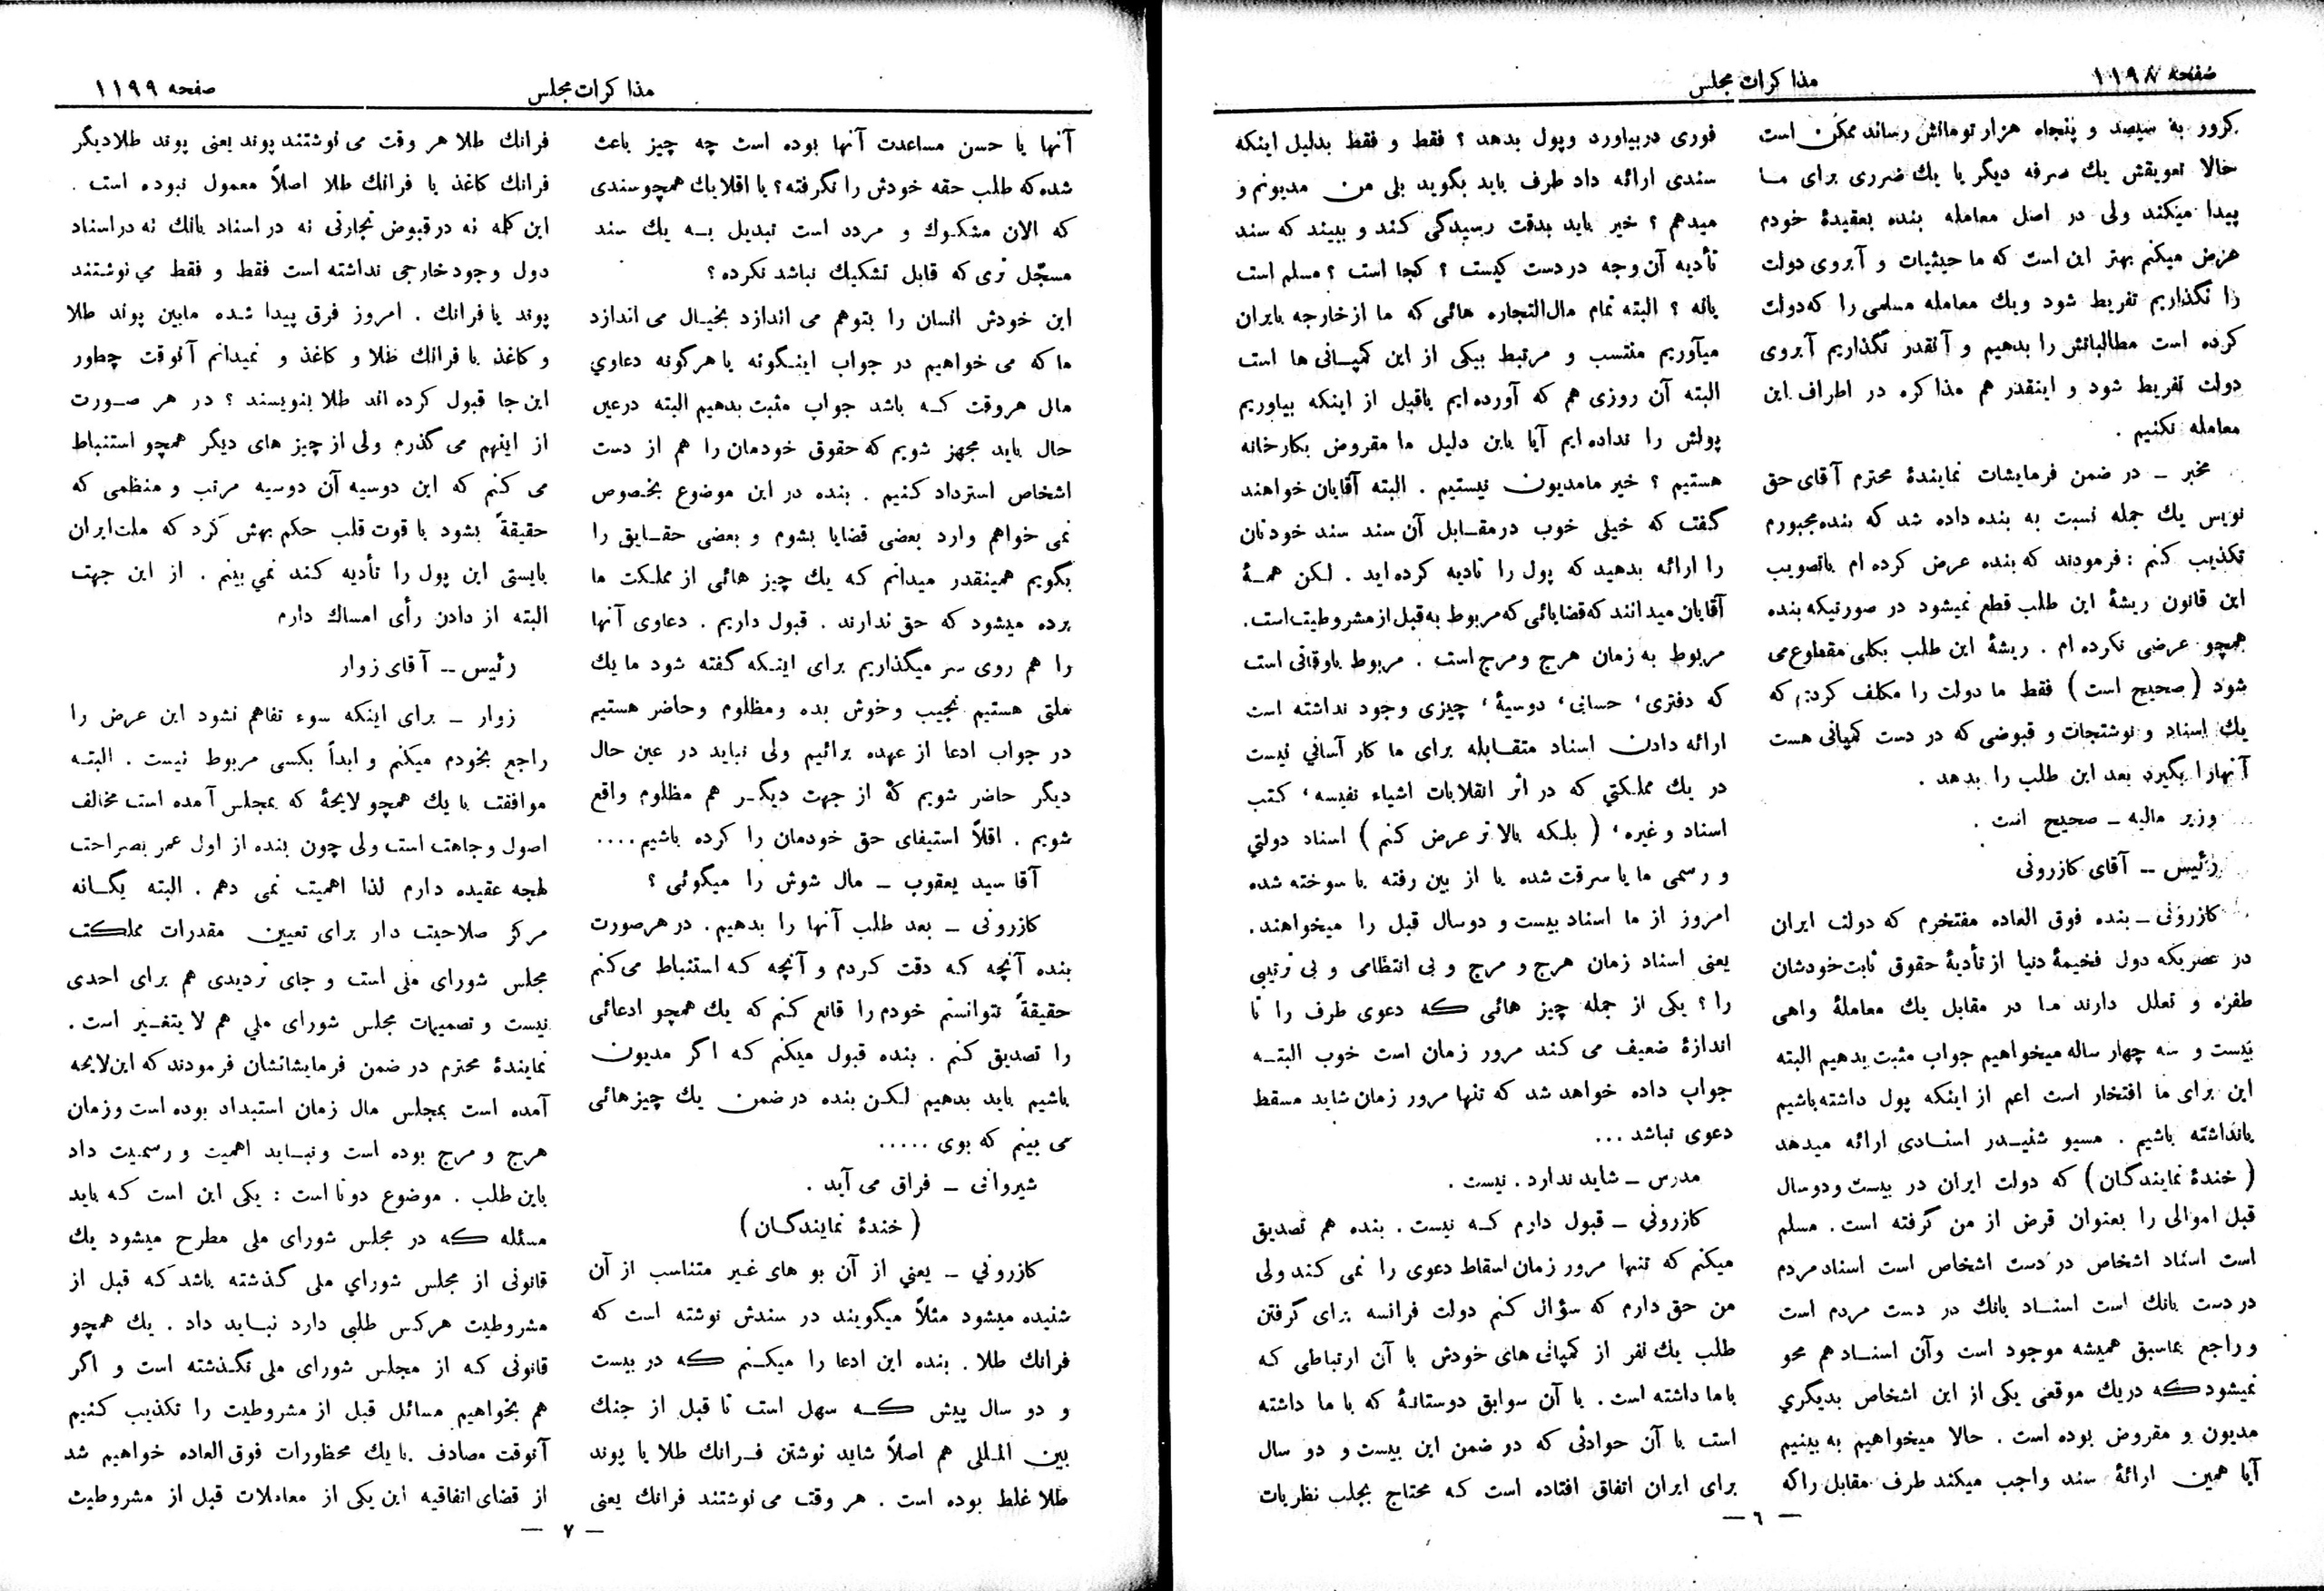 صفحه ۱۱۹۸
مذاکرات مجلس
کرور به سیصد و پنجاه هزار تومانش رساند ممکن است
حالا تعویقش یك صرفه دیگر یا یك ضرری برای ما
پیدا میکند ولی در اصل معامله بنده بعقیدهٔ خودم
عرض میکنم بهتر این است که ما حیثیات و آبروی دولت
را نگذاریم تفریط شود ویك معامله مسلمی را که دولت
کرده است مطالباتش را بدهیم و آنقدر نگذاریم آبروی
دولت تفریط شود و اینقدر هم مذاکره در اطراف این
معامله نکنیم .
مخبر ـ در ضمن فرمایشات نمایندهٔ محترم آقای حق
نویس یك جمله نسبت به بنده داده شد که بنده مجبورم
تکذیب کنم : فرمودند که بنده عرض کرده ام باتصویب
این قانون ریشهٔ این طلب قطع نمیشود در صورتیکه بنده
همچو عرضی نکرده ام . ریشهٔ این طلب بکلی مقطوع می
شود ( صحیح است ) فقط ما دولت را مکلف کردیم که
یك اسناد و نوشتجات و قبوضی که در دست کمپانی هست
آنهارا بگیرد بعد این طلب را بدهد .
وزیر مالیه ـ صحیح است .
رئیس ــ آقای کازرونی
کازرونی ـ بنده فوق العاده مفتخرم که دولت ایران
در عصریکه دول فخیمهٔ دنیا از تأدیهٔ حقوق ثابت خودشان
طفره و تعلل دارند ما در مقابل یك معاملهٔ واهی
بیست و سه چهار ساله میخواهیم جواب مثبت بدهیم البته
این برای ما افتخار است اعم از اینکه پول داشته باشیم
یانداشته باشیم . مسیو شنیدر اسنادی ارائه میدهد
( خندهٔ نمایندگان ) که دولت ایران در بیست ودوسال
قبل اموالی را بعنوان قرض از من گرفته است . مسلم
است اسناد اشخاص در دست اشخاص است اسناد مردم
در دست بانك است اسناد بانك در دست مردم است
و راجع بماسبق همیشه موجود است وآن اسناد هم محو
نمیشود که دریك موقعی یکی از این اشخاص بدیگری
مدیون و مقروض بوده است . حالا میخواهیم به بینیم
آیا همین ارائهٔ سند واجب میکند طرف مقابل را که
فوری دربیاورد وپول بدهد ؟ فقط و فقط بدلیل اینکه
سندی ارائه داد طرف باید بگوید بلی من مدیونم و
میدهم ؟ خیر باید بدقت رسیدگی کند و ببیند که سند
تأدیه آن وجه در دست کیست ؟ کجا است ؟ مسلم است
یانه ؟ البته تمام مال‌التجاره هائی که ما از خارجه بایران
میآوریم منتسب و مرتبط بیکی از این کمپانی ها است
البته آن روزی هم که آورده ایم یاقبل از اینکه بیاوریم
پولش را نداده ایم آیا باین دلیل ما مقروض بکارخانه
هستیم ؟ خیر مامدیون نیستیم . البته آقایان خواهند
گفت که خیلی خوب در مقابل آن سند سند خودتان
را ارائه بدهید که پول را تادیه کرده اید . لکن همهٔ
آقایان میدانند که قضایائی که مربوط به قبل از مشروطیت است .
مربوط به زمان هرج ومرج است . مربوط باوقاتی است
که دفتری ، حسابی ، دوسیهٔ ، چیزی وجود نداشته است
ارائه دادن اسناد متقابله برای ما کار آسانی نیست
در یك مملکتی که در اثر انقلابات اشیاء نفیسه ، کتب
اسناد وغیره ، ( بلکه بالاتر عرض کنم ) اسناد دولتی
و رسمی ما یا سرقت شده یا از بین رفته یا سوخته شده
امروز از ما اسناد بیست و دوسال قبل را میخواهند .
یعنی اسناد زمان هرج و مرج و بی انتظامی و بی ترتیبی
را ؟ یکی از جمله چیز هائی که دعوی طرف را تا
اندازهٔ ضعیف می کند مرور زمان است خوب البته
جواب داده خواهد شد که تنها مرور زمان شاید مسقط
دعوی نباشد ...
مدرس ـ شاید ندارد . نیست .
کازرونی ـ قبول دارم که نیست . بنده هم تصدیق
میکنم که تنها مرور زمان اسقاط دعوی را نمی کند ولی
من حق دارم که سؤال کنم دولت فرانسه برای گرفتن
طلب یك نفر از کمپانی های خودش با آن ارتباطی که
باما داشته است . با آن سوابق دوستانهٔ که با ما داشته
است با آن حوادثی که دو ضمن این بیست و دو سال
برای ایران اتفاق افتاده است که محتاج بجلب نظریات
— ٦ —
مذاکرات مجلس
صفحه ۱۱۹۹
آنها یا حسن مساعدت آنها بوده است چه چیز باعث
شده که طلب حقه خودش را نگرفته ؟ یا اقلا یك همچو سندی
که الان مشکوك و مردد است تبدیل به یك سند
مسجّل تری که قابل تشکیك نباشد نکرده ؟
این خودش انسان را بتوهم می اندازد بخیال می اندازد
ما که می خواهیم در جواب اینگونه یا هرگونه دعاوی
مالی هروقت که باشد جواب مثبت بدهیم البته درعین
حال باید مجهز شویم که حقوق خودمان را هم از دست
اشخاص استرداد کنیم . بنده در این موضوع بخصوص
نمی خواهم وارد بعضی قضایا بشوم و بعضی حقایق را
بگویم همینقدر میدانم که یك چیز هائی از مملکت ما
برده میشود که حق ندارند . قبول داریم . دعاوی آنها
را هم روی سر میگذاریم برای اینکه گفته شود ما یك
ملتی هستیم نجیب وخوش بده ومظلوم وحاضر هستیم
در جواب ادعا از عهده برائیم ولی نباید در عین حال
دیگر حاضر شویم که از جهت دیگر هم مظلوم واقع
شویم . اقلاً استیفای حق خودمان را کرده باشیم ....
آقا سید یعقوب ـ مال شوش را میگوئی ؟
کازرونی ـ بعد طلب آنها را بدهیم . در هرصورت
بنده آنچه که دقت کردم و آنچه که استنباط می کنم
حقیقهً نتوانستم خودم را قانع کنم که یك همچو ادعائی
را تصدیق کنم . بنده قبول میکنم که اگر مدیون
باشیم باید بدهیم لکن بنده در ضمن یك چیز هائی
می بینم که بوی .....
شیروانی ـ فراق می آید .
( خندهٔ نمایندگان )
کازرونی ـ یعنی از آن بو های غیر متناسب از آن
شنیده میشود مثلاً میگویند در سندش نوشته است که
فرانك طلا . بنده این ادعا را میکنم که در بیست
و دو سال پیش که سهل است تا قبل از جنك
بین المللی هم اصلاً شاید نوشتن فرانك طلا یا پوند
طلا غلط بوده است . هر وقت می نوشتند فرانك یعنی
فرانك طلا هر وقت می نوشتند پوند یعنی پوند طلا دیگر
فرانك کاغذ یا فرانك طلا اصلاً معمول نبوده است .
این کلمه نه در قبوض تجارتی نه در اسناد بانك نه در اسناد
دول وجود خارجی نداشته است فقط و فقط می نوشتند
پوند یا فرانك . امروز فرق پیدا شده مابین پوند طلا
و کاغذ یا فرانك طلا و کاغذ و نمیدانم آنوقت چطور
این جا قبول کرده اند طلا بنویسند ؟ در هر صورت
از اینهم می گذرم ولی از چیز های دیگر همچو استنباط
می کنم که این دوسیه آن دوسیه مرتب و منظمی که
حقیقهً بشود با قوت قلب حکم بهش کرد که ملت ایران
بایستی این پول را تأدیه کند نمی بینم . از این جهت
البته از دادن رأی امساك دارم
رئیس ــ آقای زوار
زوار ـ برای اینکه سوء تفاهم نشود این عرض را
راجع بخودم میکنم و ابداً بکسی مربوط نیست . البته
موافقت با یك همچو لایحهٔ که بمجلس آمده است مخالف
اصول وجاهت است ولی چون بنده از اول عمر بصراحت
لهجه عقیده دارم لذا اهمیت نمی دهم . البته یگانه
مرکز صلاحیت دار برای تعیین مقدرات مملکت
مجلس شورای ملی است و جای تردیدی هم برای احدی
نیست و تصمیمات مجلس شورای ملی هم لایتغیر است .
نمایندهٔ محترم در ضمن فرمایشاتشان فرمودند که این لایحه
آمده است بمجلس مال زمان استبداد بوده است وزمان
هرج و مرج بوده است ونباید اهمیت و رسمیت داد
باین طلب . موضوع دوتا است : یکی این است که باید
مسئله که در مجلس شورای ملی مطرح میشود یك
قانونی از مجلس شورای ملی گذشته باشد که قبل از
مشروطیت هرکس طلبی دارد نباید داد . یك همچو
قانونی که از مجلس شورای ملی نگذشته است و اگر
هم بخواهیم مسائل قبل از مشروطیت را تکذیب کنیم
آنوقت مصادف با یك محظورات فوق العاده خواهیم شد
از قضای اتفاقیه این یکی از معاملات قبل از مشروطیت
— ۷ —